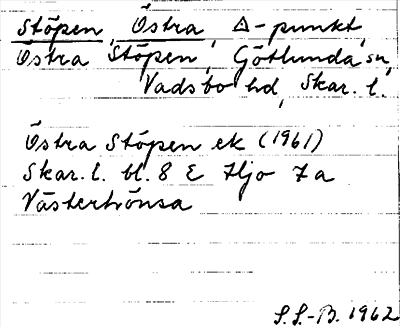 Stöpen, Östra, △-punkt,
Östra Stöpen, Götlunda sn,
Vadsbo hd, Skar. l.
Östra Stöpen ek (1961)
Skar. l. bl. 8 E Hjo 7a
Västertrönsa
S.S.-B. 1962